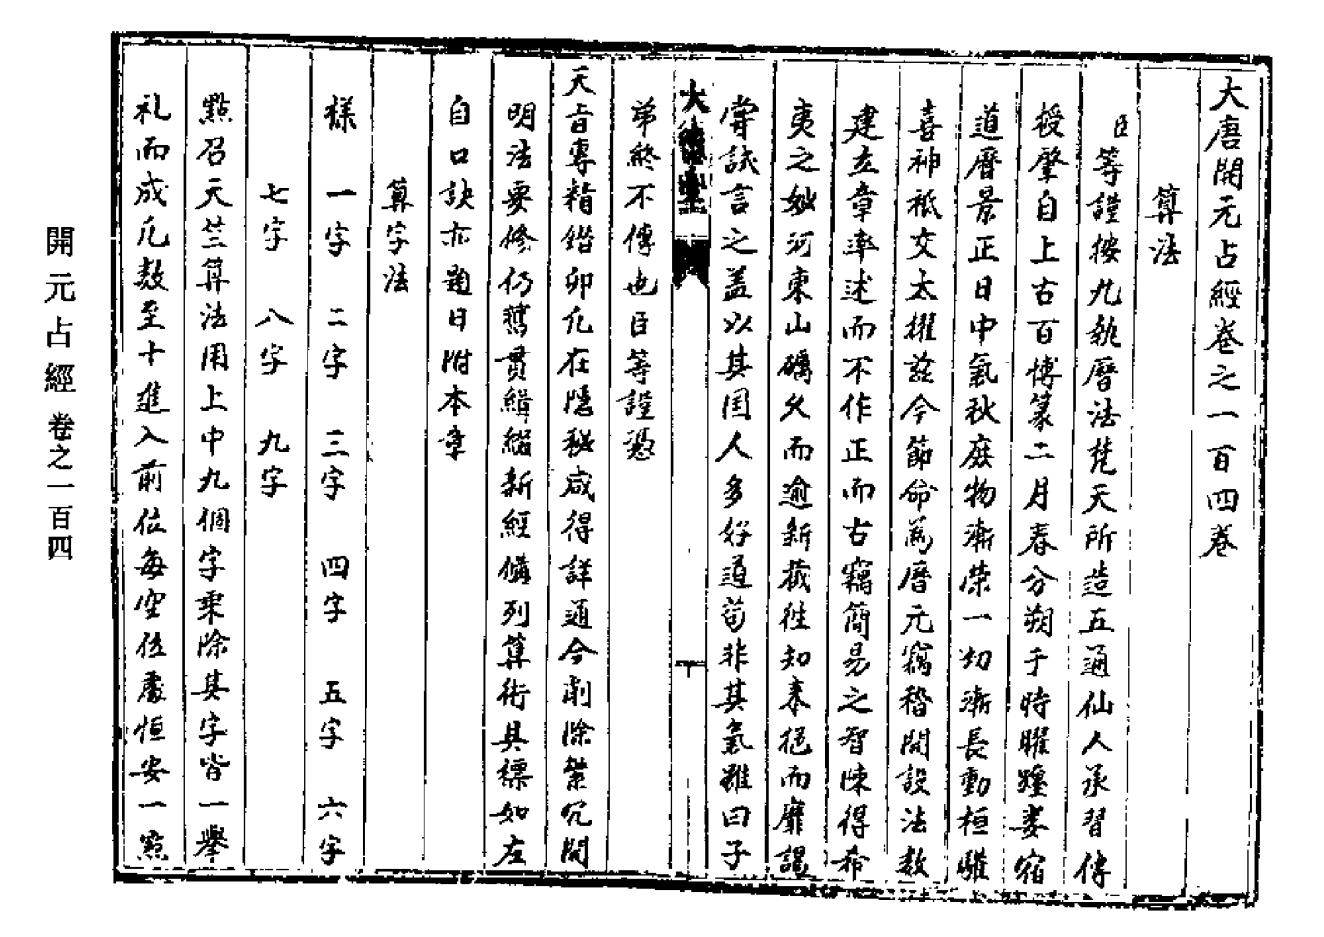 大唐開元占經卷之一百四卷
算法
臣等謹按九執曆法梵天所造五通仙人承習傳
授肇自上古百博篆二月春分朔于時曜躔婁宿
道曆景正日中氣秋庶物漸榮一切漸長動植驩
喜神祗交太擢茲今節命爲曆元竊稽開設法數
建立章率述而不作正而古竊簡易之智陳得希
夷之妙河東山礪久而逾新截徃知來挹而靡謁
嘗訣言之盖以其国人多好道苟非其氣雖曰子
弟終不傳也臣等謹憑
天旨專精鍇卯凢在隱秘咸得詳通今削除繁冗開
明法要修仍舊貫緝綴新經備列算術具標如左
自口訣亦題日附本章
算字法
様 一字 二字 三字 四字 五字 六字
七字 八字 九字
點召天竺算法用上中九個字乘除其字皆一舉
礼而成凢数至十進入前位每空位處恒安一點
開元占經 卷之一百四